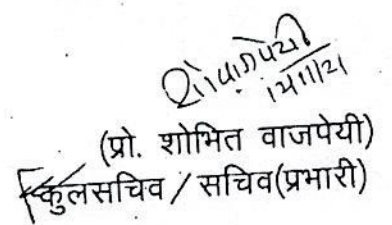 शोवाजपेयी
(प्रो. शोभित वाजपेयी)
कुलसचिव / सचिव(प्रभारी)